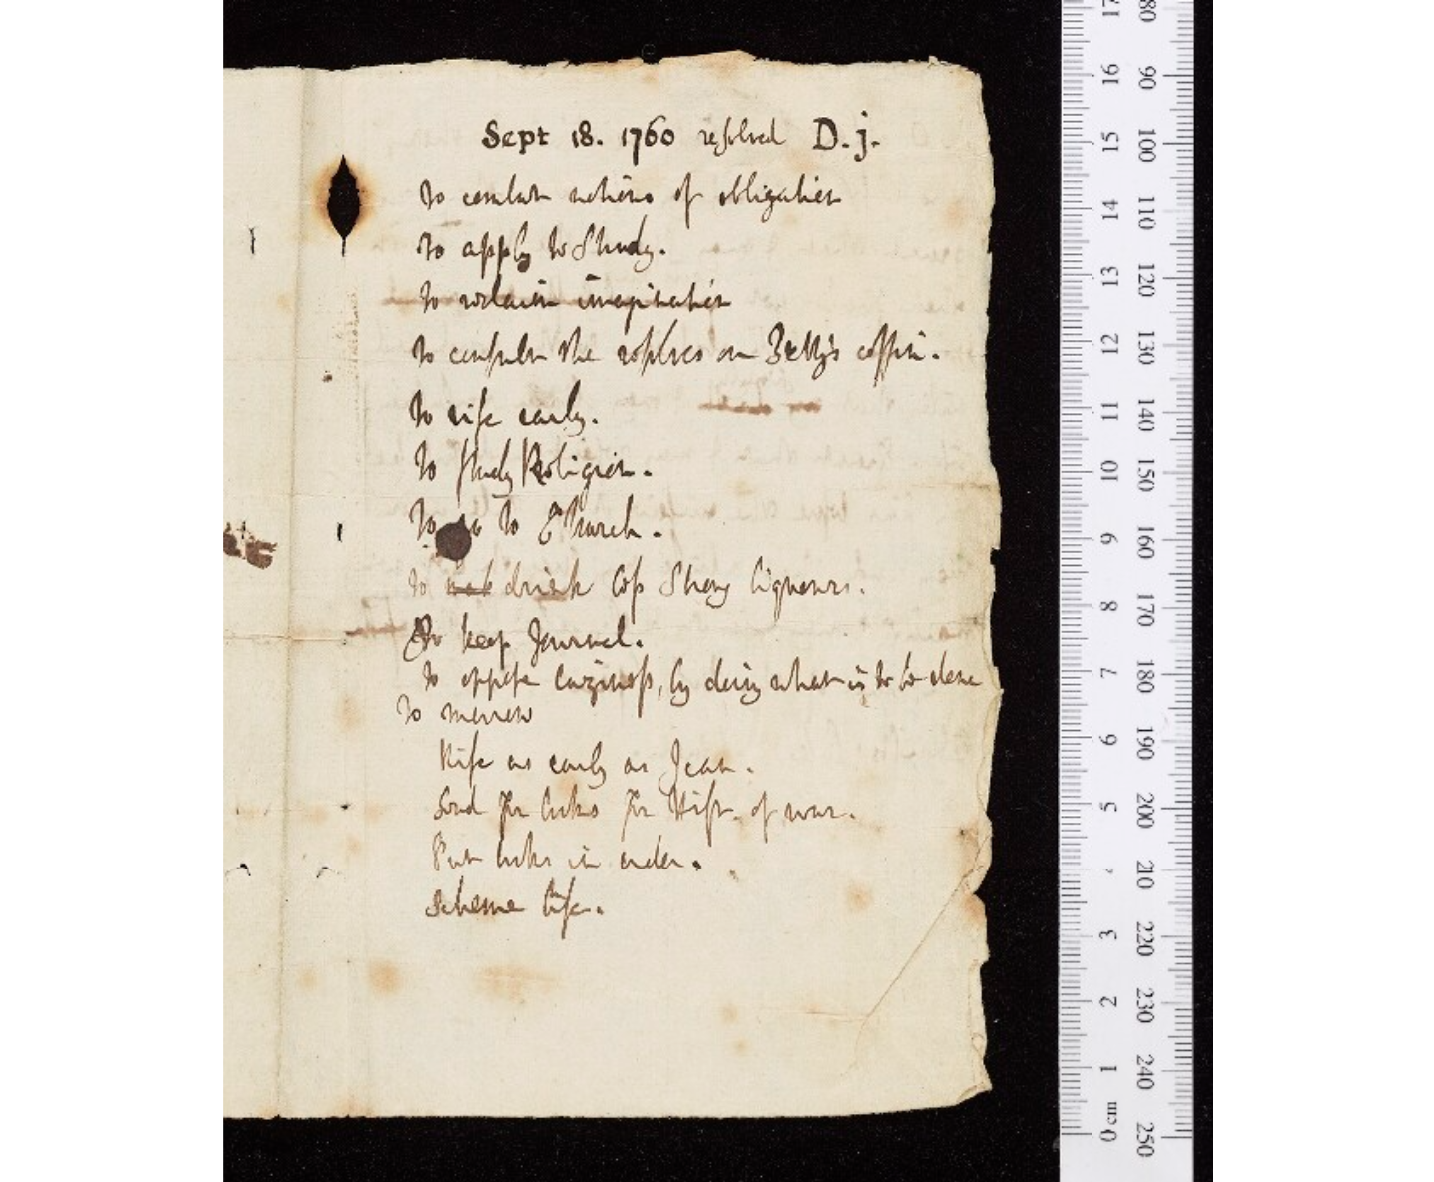 Sept 18. 1760 resolved D. j.
To combat notions of obligation
To apply to Study.
To reclaim imagination
To consult the resolves on Tetty's coffin.
To rise early.
To study Religion.
To go to Church.
To not drink less Strong liquours.
To keep Journal.
To oppose laziness, by doing what is to be done
To morrow
Rise as early as I can.
Send for books for Hist. of war.
Put books in order.
Scheme life.
17
16
15
14
13
12
11
10
9
8
7
6
5
3
2
1
0 cm
80
90
100
110
120
130
140
150
160
170
180
190
200
210
220
230
240
250